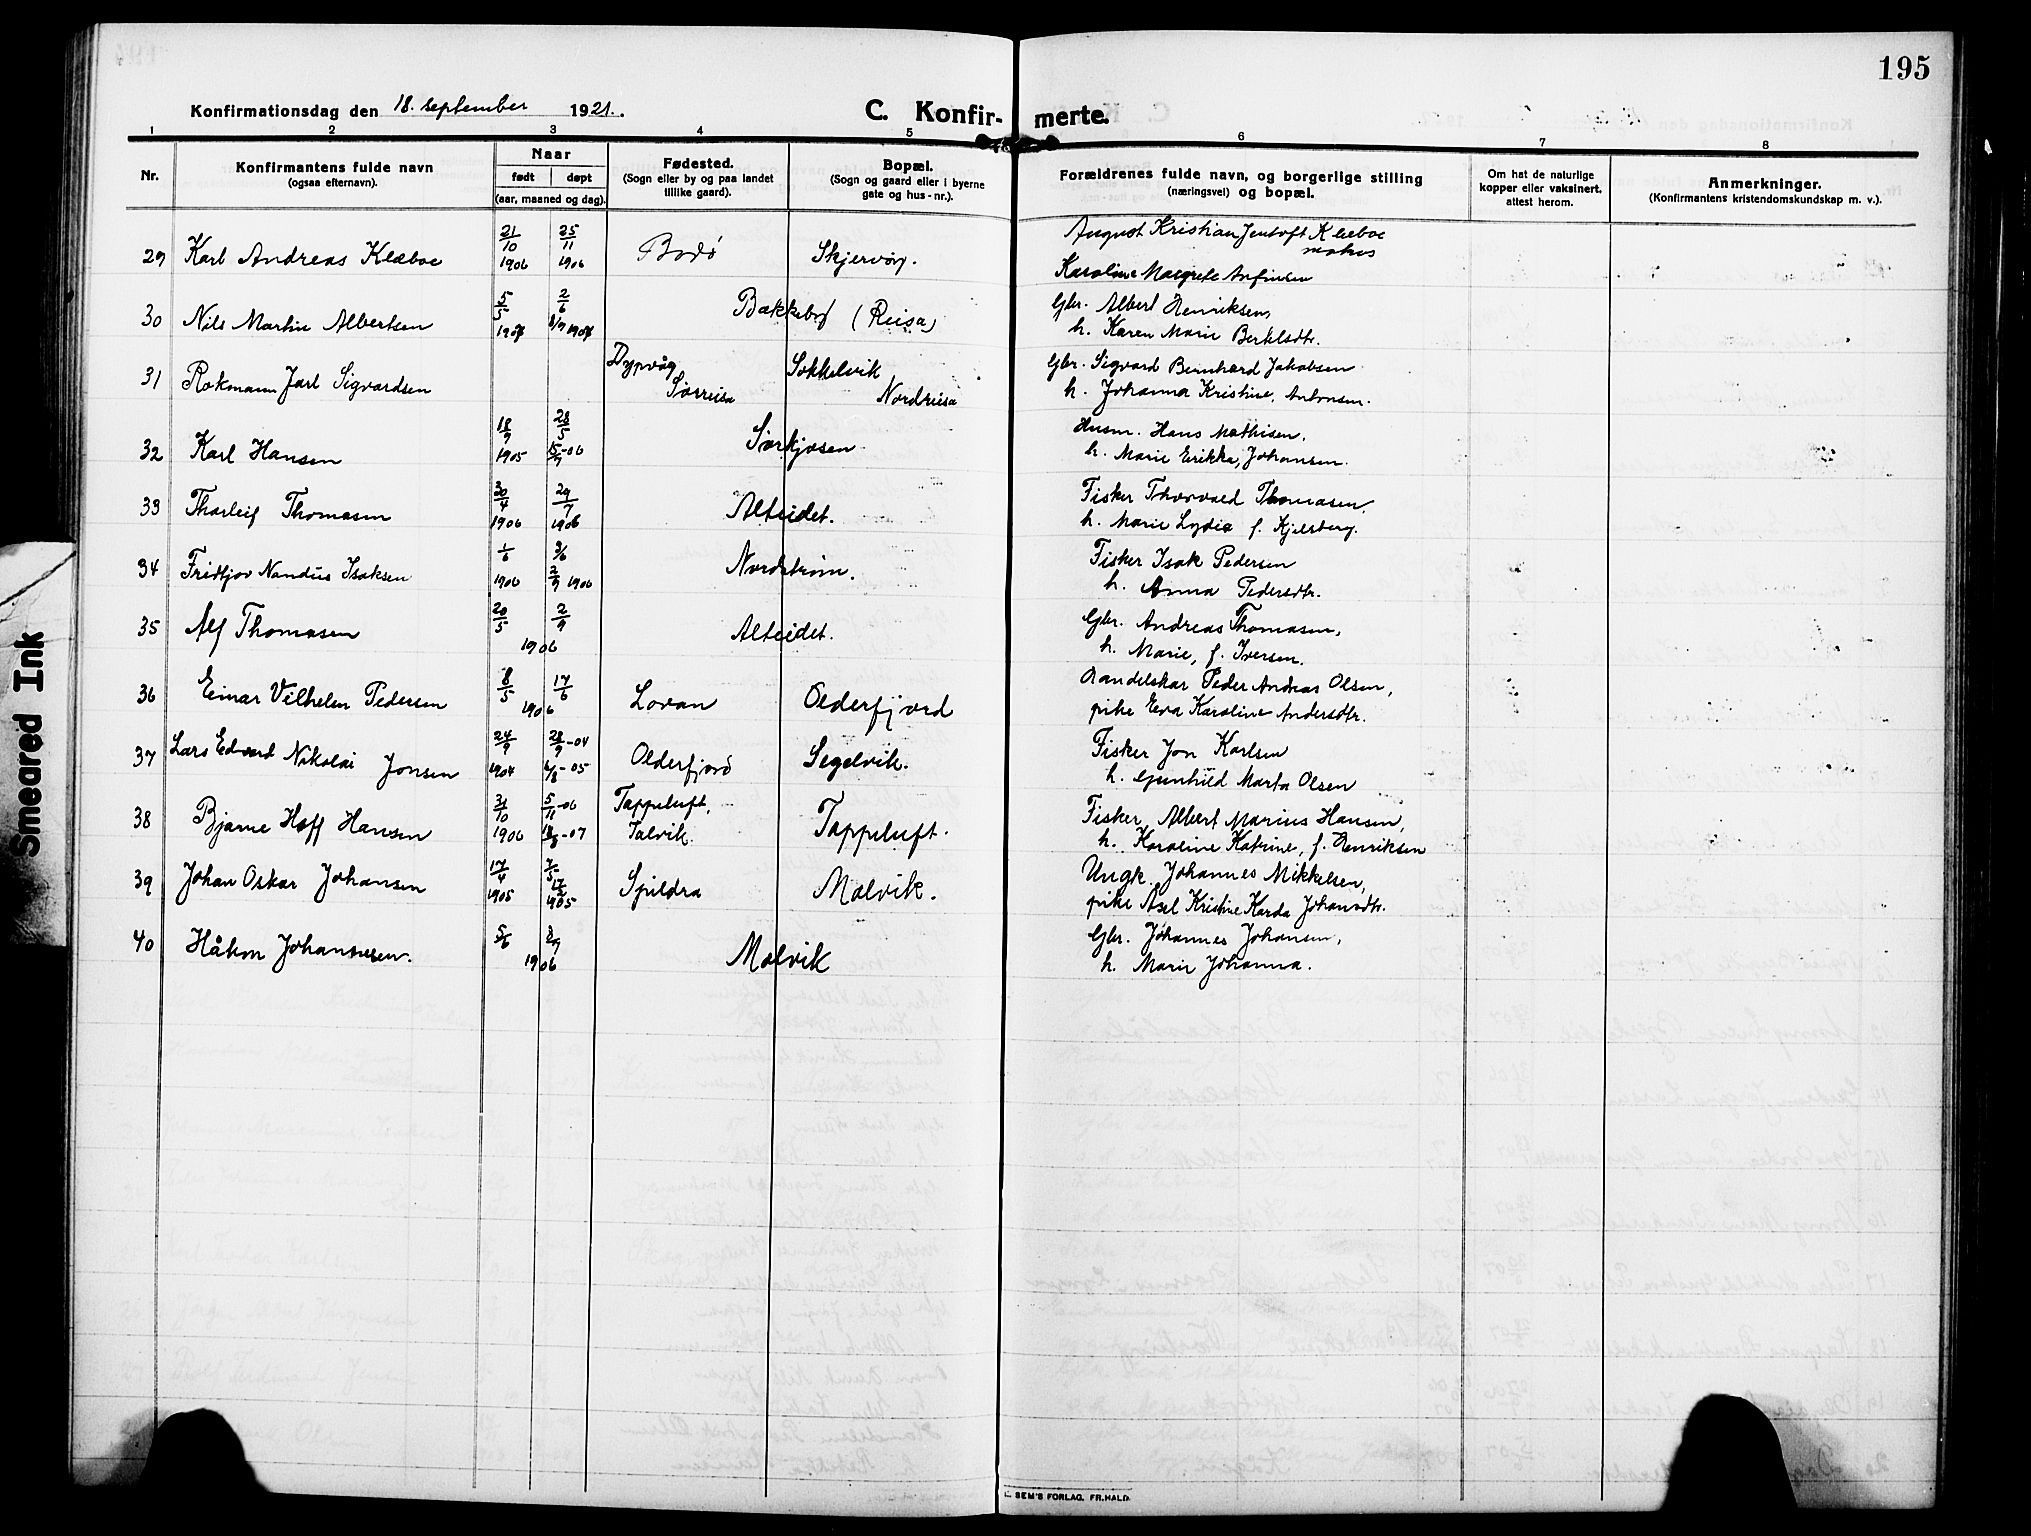 195
Konfirmationsdag den 18. september 1921.
C. Konfir- merte.
1 2 3 4 5 6 7 8
Nr.
Konfirmantens fulde navn
(ogsaa efternavn).
Naar
født døpt
(aar, maaned og dag).
Fødested.
(Sogn eller by og paa landet
tillike gaard).
Bopæl.
(Sogn og gaard eller i byerne
gate og hus-nr.).
Forældrenes fulde navn, og borgerlige stilling
(næringsvei) og bopæl.
Om hat de naturlige
kopper eller vaksinert.
attest herom.
Anmerkninger.
(Konfirmantens kristendomskundskap m. v.).
29 Karl Andreas Klæboe 21/10 1906 25/11 1906 Bodø Skjervøy. August Kristian Jentoft Klæboe
Karoline Margrete Arfinsen
30 Nils Martin Albertsen 5/5 2/6 Bakkeby (Reisa) Gbr. Albert Henriksen,
h. Karen Marie Bertelsdtr.
31 Rokmann Jarl Sigvardsen Dypvåg Sørreisa Sokkelvik Nordreisa Gbr. Sigvard Bernhard Jakobsen
h. Johanna Kristine, Antonsen.
32 Karl Hansen 18/9 1905 28/5 15/9-06 Sørkjosen Husm. Hans Mathisen.
h. Marie Erikka, Johansen.
33 Thorleif Thomasen 30/4 1906 29/7 1906 Alteidet. Fisker Thorvald Thomasen,
h. Marie Lydia f. Kjelsberg.
34 Fridtjov Nandus Isaksen 1/6 1906 3/6 2/9 1906 Nordstrøm. Fisker Isak Pedersen
h. Anna Pedersdtr.
35 Alf Thomasen 20/5 2/9 1906 Alteidet. Gbr. Andreas Thomasen,
h. Marie, f. Iversen.
36 Einar Vilhelm Pedersen 8/5 17/6 1906 Lovan Olderfjord Handelskar Peder Andreas Olsen,
pike Eva Karoline Andersdtr.
37 Lars Edvard Nikolai Jonsen 24/9 1904 28/9-04 6/8-05 Olderfjord Segelvik. Fisker Jon Karlsen
h. Gunhild Marta Olsen
38 Bjarne Hoff Hansen 31/10 1906 5/11-06 18/8-07 Tappeluft, Talvik. Tappeluft. Fisker Albert Marius Hansen,
h. Karoline Katrine, f. Henriksen
39 Johan Oskar Johansen 17/4 1905 7/5 1905 Spildra Molvik. Ungk. Johannes Mikkelsen,
pike Asel Kristine Karda Johansdtr.
40 Håkon Johannesen. 5/6 1906 Molvik Gbr. Johannes Johansen,
h. Marie Johanna.
SEM'S FORLAG, FR.HALD.
Smeared Ink